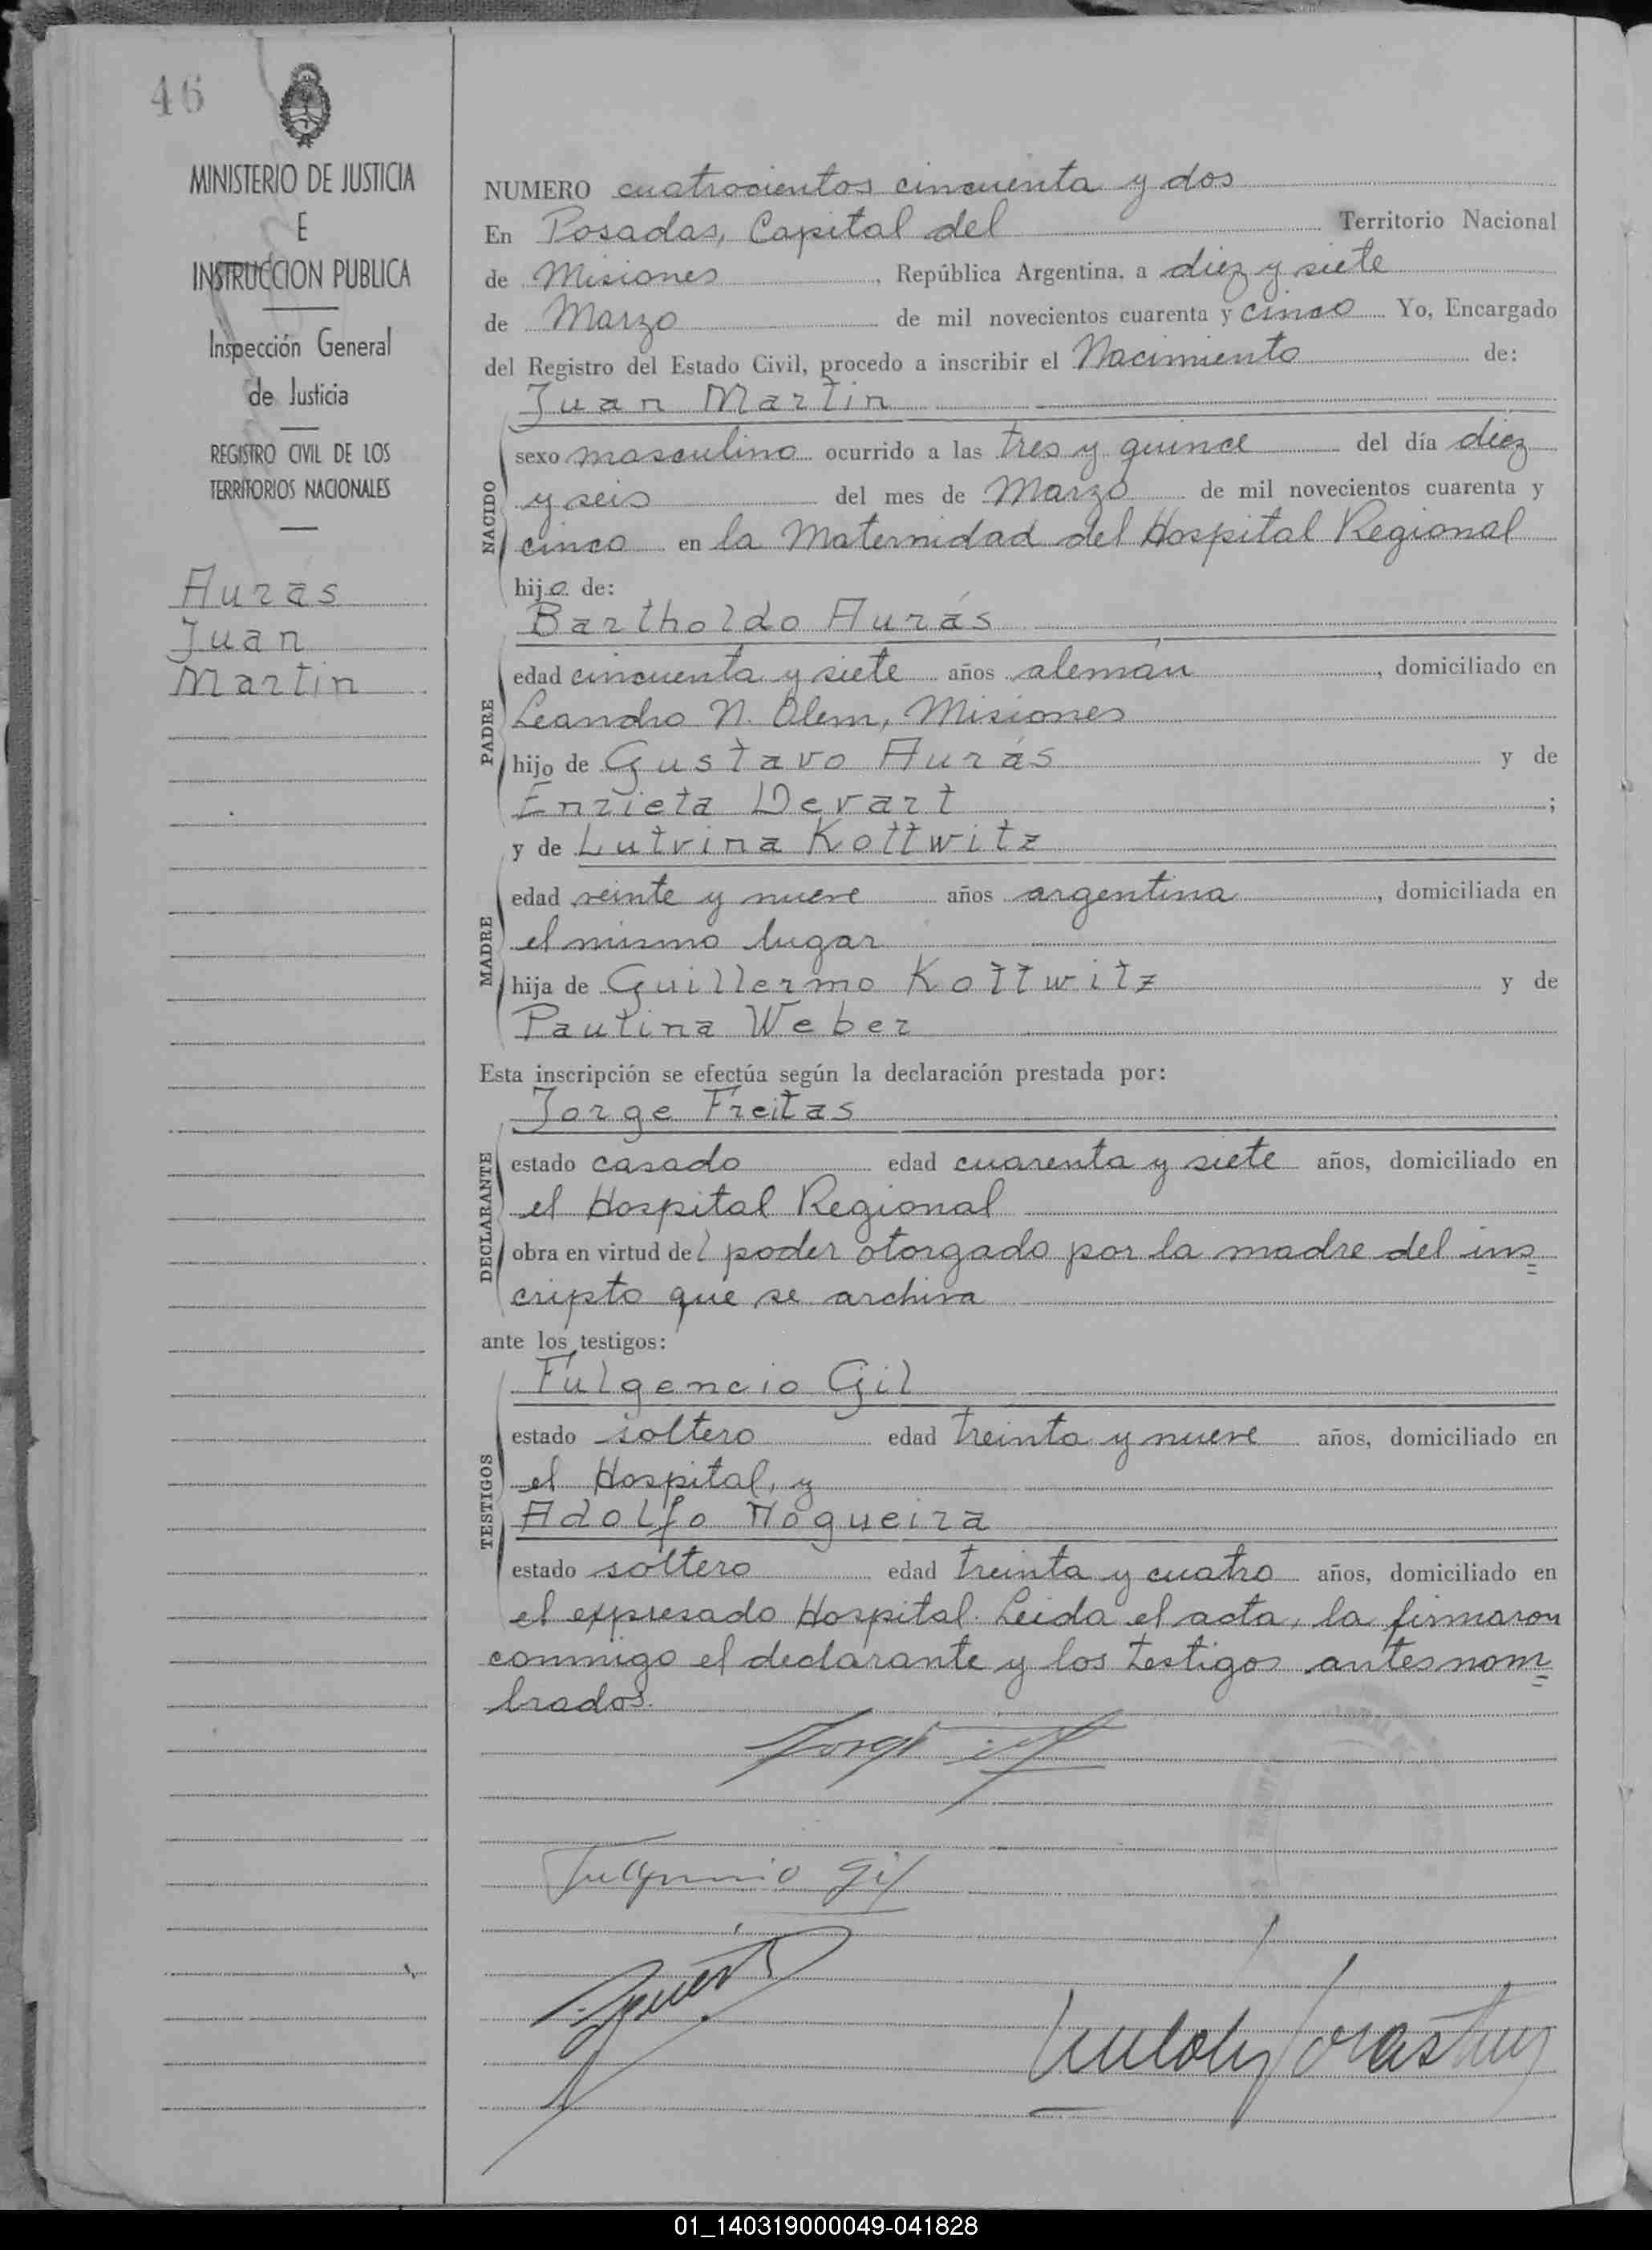 46
MINISTERIO DE JUSTICIA
E
INSTRUCCION PUBLICA
Inspección General
de Justicia
REGISTRO CIVIL DE LOS
TERRITORIOS NACIONALES
Aurás
Juan
Martin
NUMERO cuatrocientos cincuenta y dos
En Posadas, Capital del Territorio Nacional
de Misiones, República Argentina, a diez y siete
de Marzo de mil novecientos cuarenta y cinco Yo, Encargado
del Registro del Estado Civil, procedo a inscribir el Nacimiento de:
Juan Martin
NACIDO
sexo masculino ocurrido a las tres y quince del día diez
y seis del mes de Marzo de mil novecientos cuarenta y
cinco en la Maternidad del Hospital Regional
hijo de:
Bartholdo Aurás
PADRE
edad cincuenta y siete años alemán, domiciliado en
Leandro N. Alem, Misiones
hijo de Gustavo Aurás y de
Enrieta Devart;
y de Lutvina Kottwitz
MADRE
edad veinte y nueve años argentina, domiciliada en
el mismo lugar
hija de Guillermo Kottwitz y de
Paulina Weber
Esta inscripción se efectúa según la declaración prestada por:
Jorge Freitas
DECLARANTE
estado casado edad cuarenta y siete años, domiciliado en
el Hospital Regional
obra en virtud del poder otorgado por la madre del ins=
cripto que se archiva
ante los testigos:
Fulgencio Gil
TESTIGOS
estado soltero edad treinta y nueve años, domiciliado en
el Hospital, y
Adolfo Nogueira
estado soltero edad treinta y cuatro años, domiciliado en
el expresado Hospital. Leida el acta, la firmaron
conmigo el declarante y los testigos antesnom=
brados.
Jorge
Fulgencio Gil
01_140319000049-041828